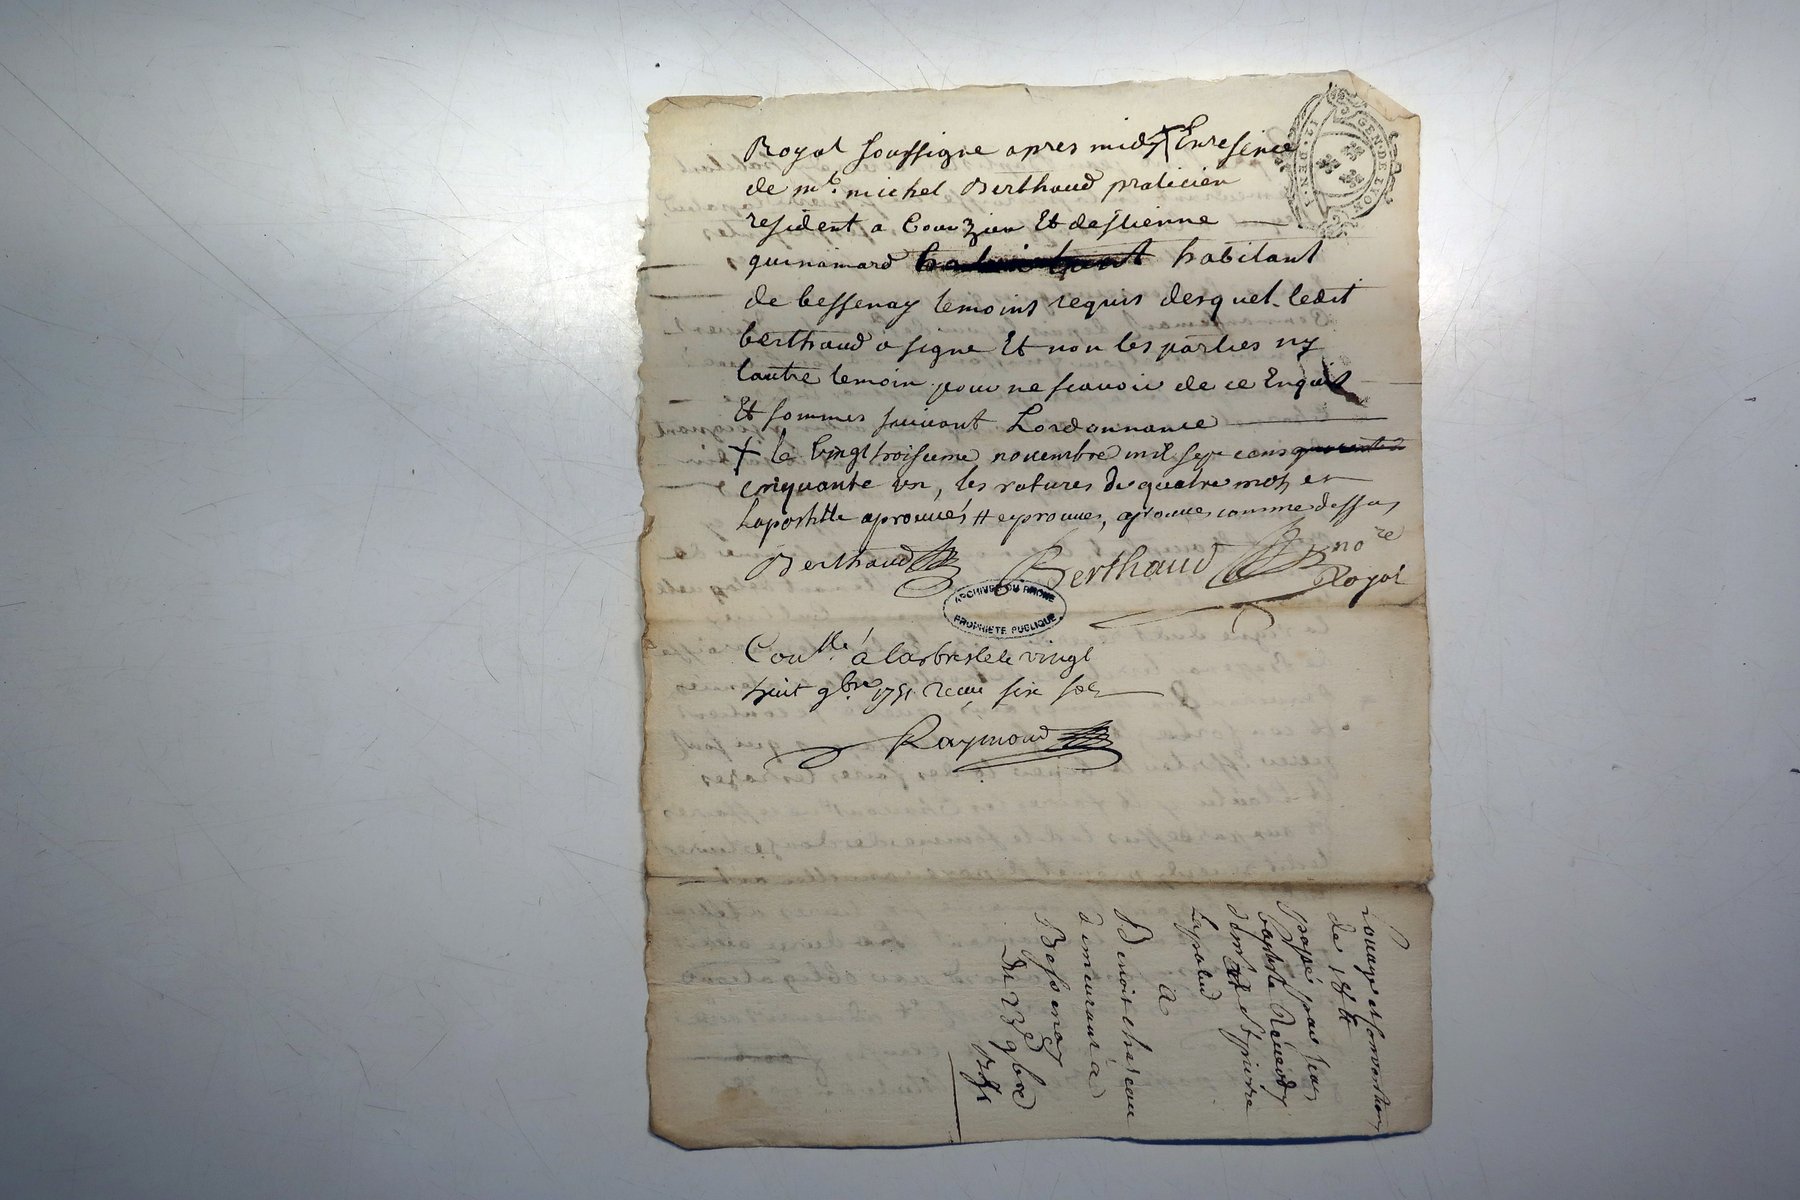 Royal soussigne apres midy + En presence
de me. michel Berthaud praticien
resident a Couzieu Et destienne
guinamard habitant
de bessenay temoins requis desquel ledit
berthaud a signe Et non les parties ny
lautre temoin pour ne scavoir de ce Enquis
Et sommes suivant Lordonnance
+ le vingt troisieme novembre mil sept cens quarante
cinquante un, les ratures de quatre mots et
Lapostille aprouvés # aprouvés, aprouves comme dessus
Berthaud Berthaud nore
Royal
ARCHIVES DU RHONE
PROPRIETE PUBLIQUE
GEN. DE LYON
Conllé à Larbresle le vingt
huit 9bre 1751 Recu six sols
Raymond
Louage et
de 18 #
passé par Jean
baptiste
demt. à St pierre
Lapalud
A
Benoit
demeurant a
Bessenay
Du 23e 9bre